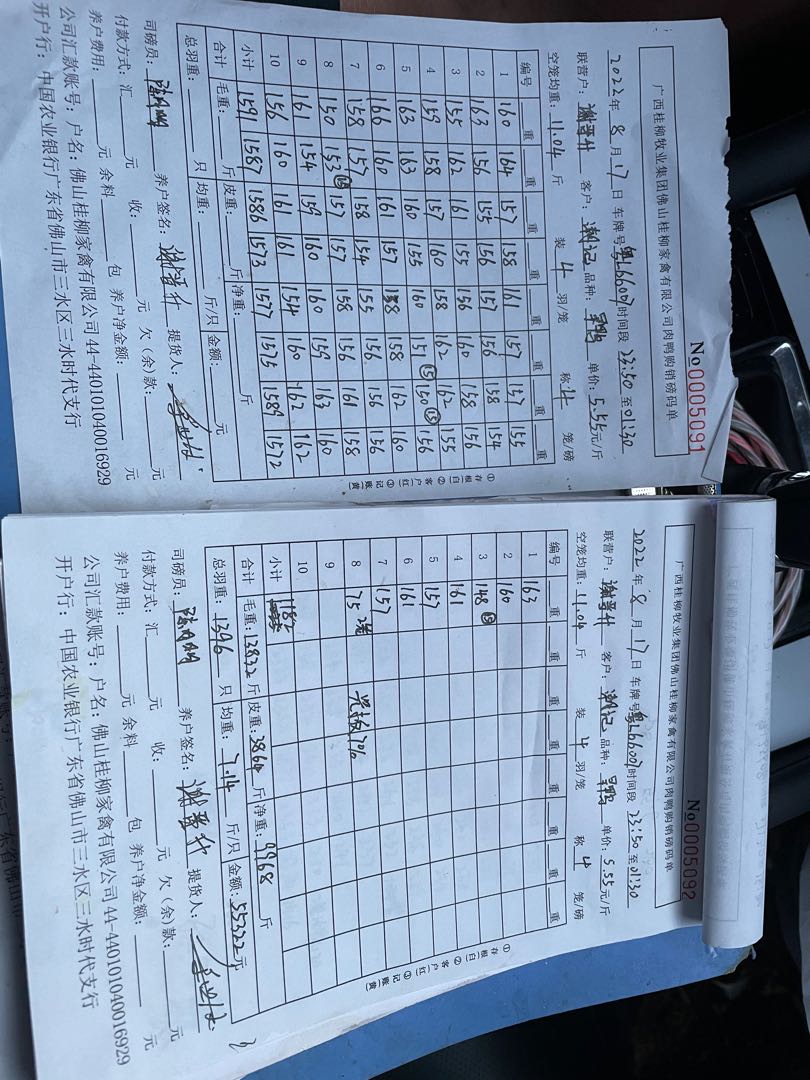 广西桂柳牧业集团佛山桂柳家禽有限公司肉鸭购销磅码单
No0005091
2022年8月17日 车牌号粤L6600 时间段23:50至01:30
联营户:谢晋升 客户:潮记 品种: 单价:5.55元/斤
空笼均重:11.04斤 装4羽/笼 称4笼/磅
编号 重 重 重 重 重 重 重 重
1 160 164 157 158 161 157 157 155
2 163 156 155 156 157 156 158 154
3 155 162 161 155 156 160 158 156
4 159 158 157 160 158 162 162 155
5 163 163 160 155 160 151⑮ 150⑮ 156
6 166 160 161 157 158 158 162 160
7 158 157 158 154 155 156 156 156
8 150 153⑮ 157 157 158 156 161 158
9 161 154 159 160 160 159 163 160
10 156 160 161 161 154 160 162 162
小计 1591 1587 1586 1573 1577 1575 1589 1572
合计 毛重: 斤 皮重: 斤 净重: 斤
总羽重: 只 均重: 斤/只 金额: 元
①存根(白) ②客户(红) ③记账(黄)
司磅员: 养户签名:谢晋升 提货人:
付款方式:汇 元 收: 元 欠(余)款: 元
养户费用: 元 余料 包 养户净金额: 元
公司汇款账号:户名:佛山桂柳家禽有限公司 44-440101040016929
开户行:中国农业银行广东省佛山市三水区三水时代支行
广西桂柳牧业集团佛山桂柳家禽有限公司肉鸭购销磅码单
No0005092
2022年8月17日 车牌号粤L6600 时间段23:50至01:30
联营户:谢晋升 客户:潮记 品种: 单价:5.55元/斤
空笼均重:11.04斤 装4羽/笼 称4笼/磅
编号 重 重 重 重 重 重 重 重
1 163
2 160
3 148⑮
4 161
5 157
6 161
7 157
8 75 2笼
9
10
小计 1182
合计 毛重:13832斤 皮重:3864斤 净重:9968斤
总羽重:1396只 均重:7.14斤/只 金额:55322元
①存根(白) ②客户(红) ③记账(黄)
司磅员: 养户签名:谢晋升 提货人:
付款方式:汇 元 收: 元 欠(余款): 元
养户费用: 元 余料 包 养户净金额: 元
公司汇款账号:户名:佛山桂柳家禽有限公司 44-440101040016929
开户行:中国农业银行广东省佛山市三水区三水时代支行